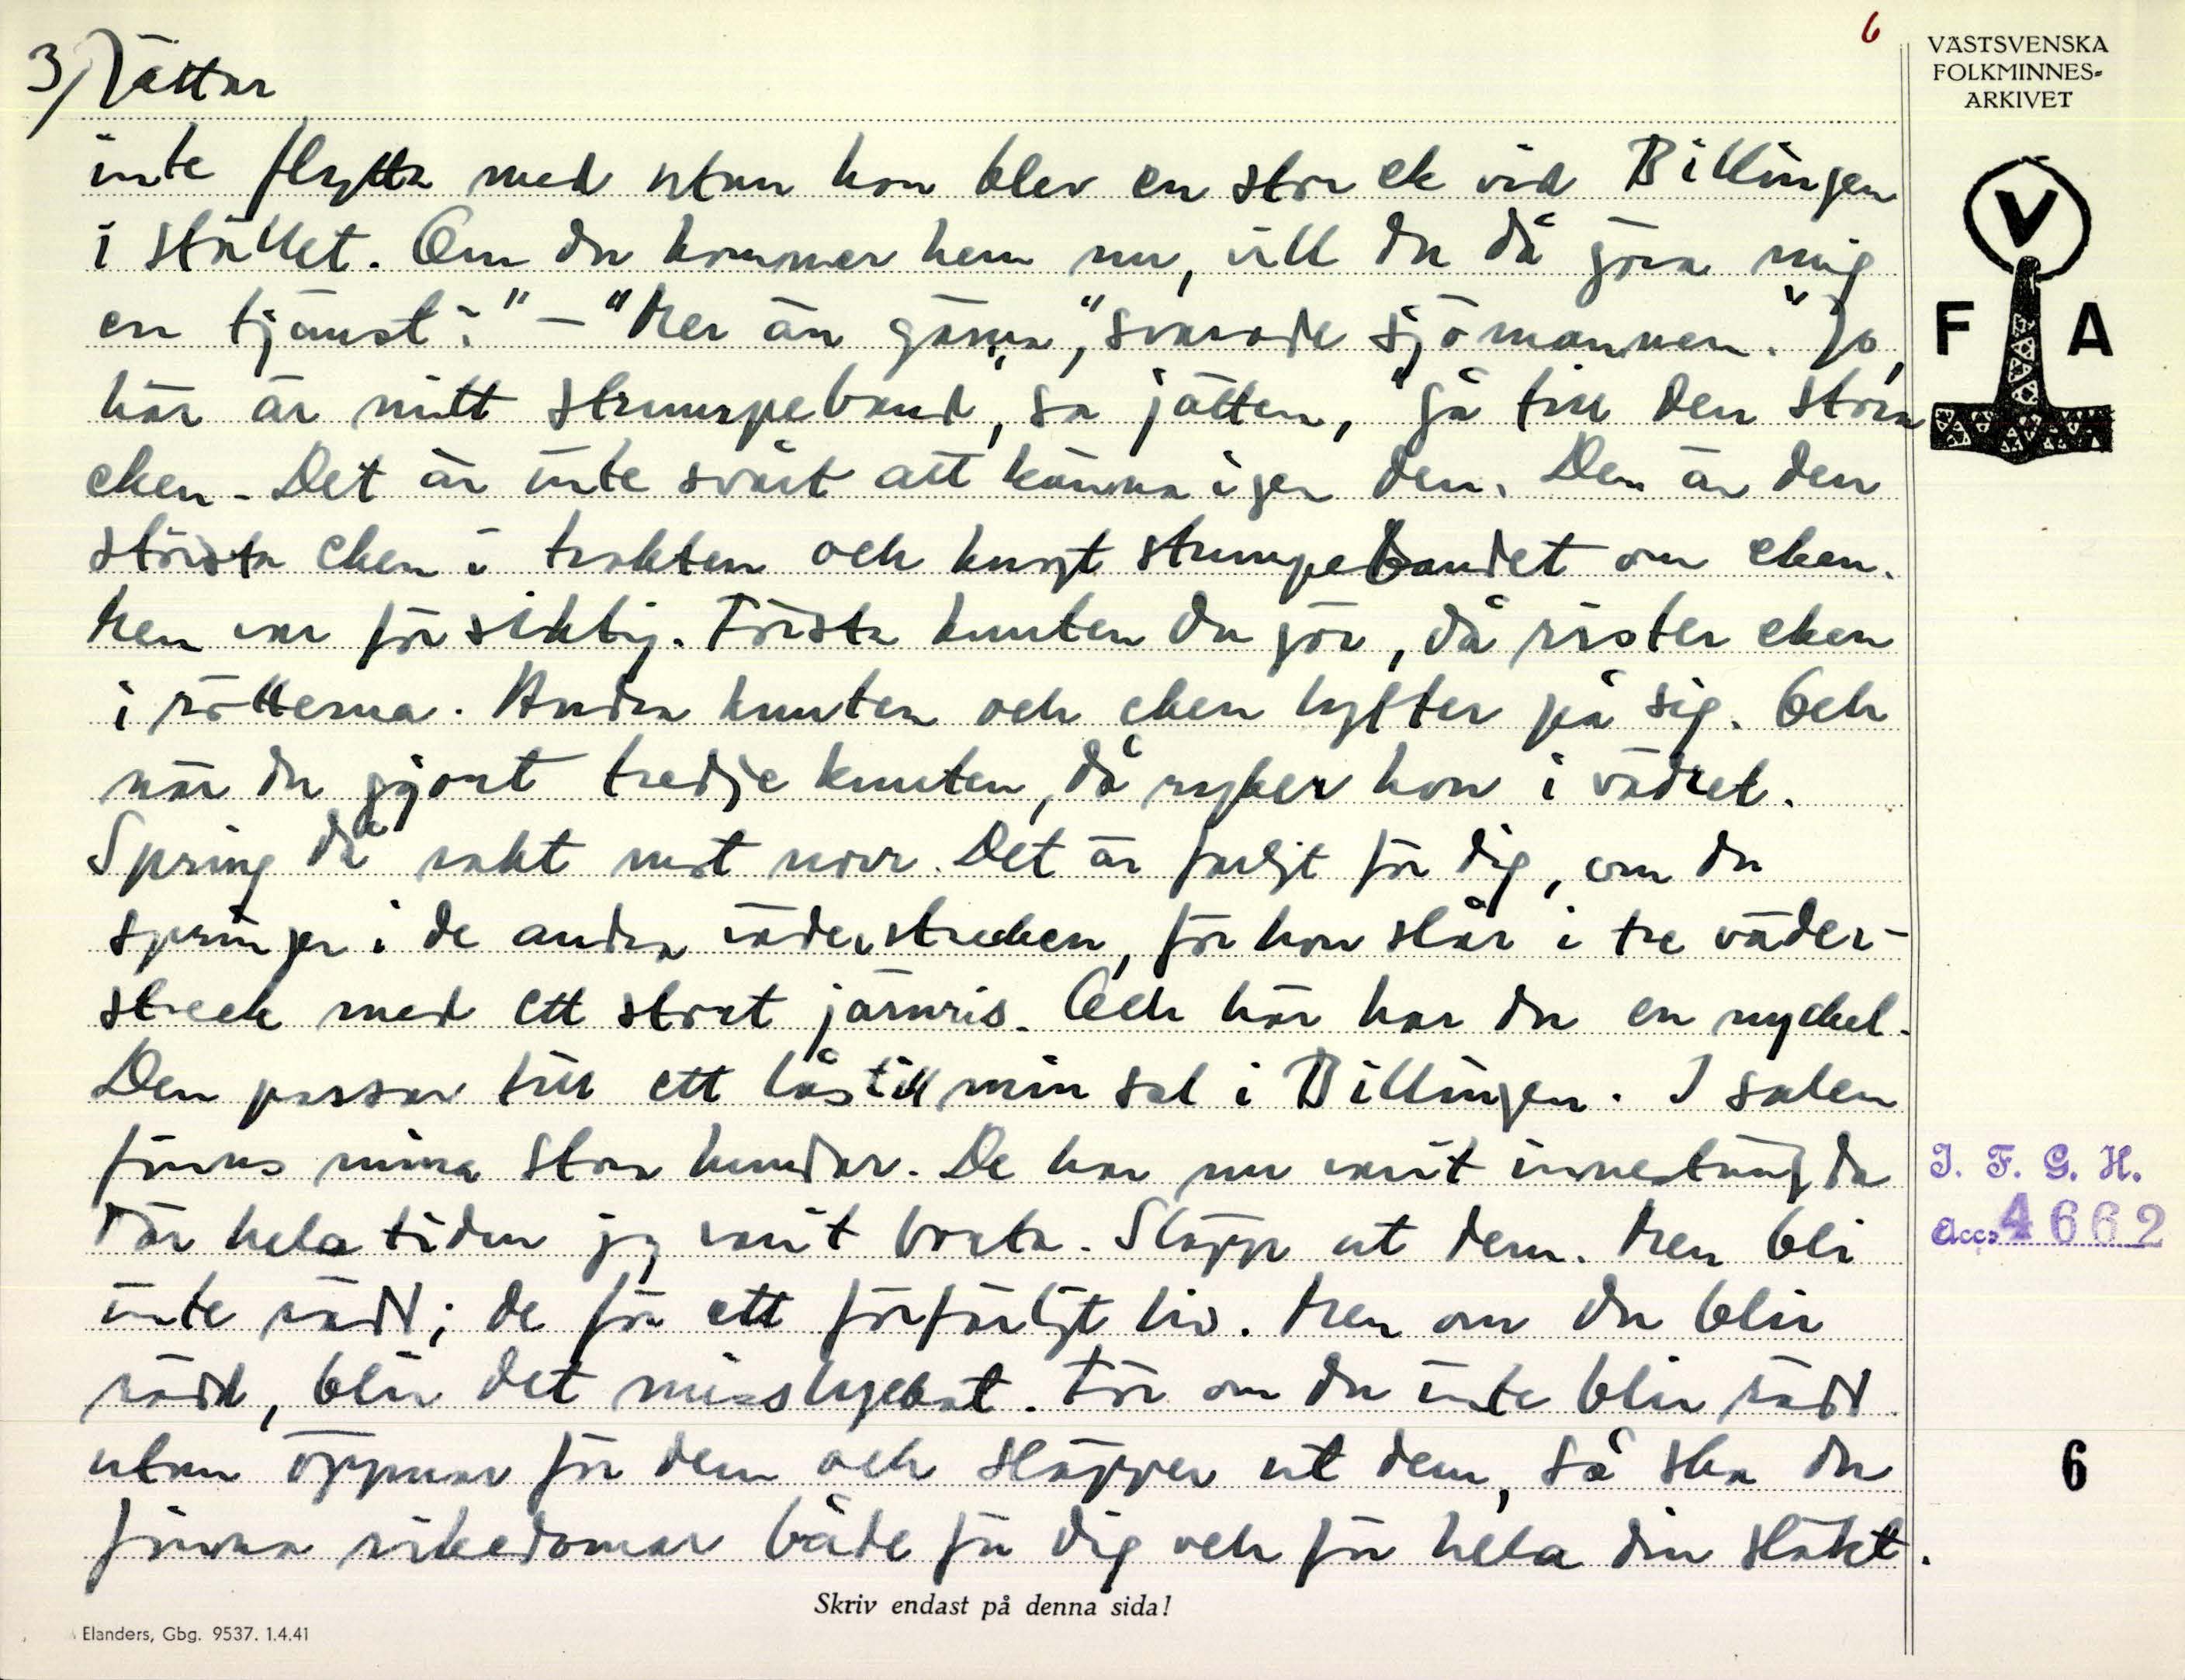 6
3/ Jättar
VÄSTSVENSKA
FOLKMINNES-
ARKIVET
V
F A
inte flytta med utan hon blev en stor ek vid Billingen
i stället. Om du kommer hem nu, vill du då göra mig
en tjänst?" – "Mer än gärna," svarade sjömannen. "Jo,
här är mitt strumpeband", sa jätten, "gå till den stora
eken. Det är inte svårt att känna igen den. Den är den
största eken i trakten och knyt strumpebandet om eken.
Men var försiktig. Första knuten du gör, då rister eken
i rötterna. Andra knuten och eken lyfter på sig. Och
när du gjort tredje knuten, då ryker hon i vädret.
Spring då rakt mot norr. Det är farligt för dig, om du
springer i de andra väderstrecken, för hon slår i tre väder-
streck med ett stort järnris. Och här har du en nyckel.
Den passar till ett lås till min sal i Billingen. I salen
finns mina stora hundar. De har nu varit innestängda
där hela tiden jag varit borta. Släpp ut dem. Men bli
inte rädd; de för ett förfärligt liv. Men om du blir
rädd, blir det misslyckat. För om du inte blir rädd
utan öppnar för dem och släpper ut dem, så ska du
finna rikedomar både för dig och för hela din släkt.
I. F. G. H.
Acc. 4662
6
Skriv endast på denna sida!
Elanders, Gbg. 9537. 1.4.41